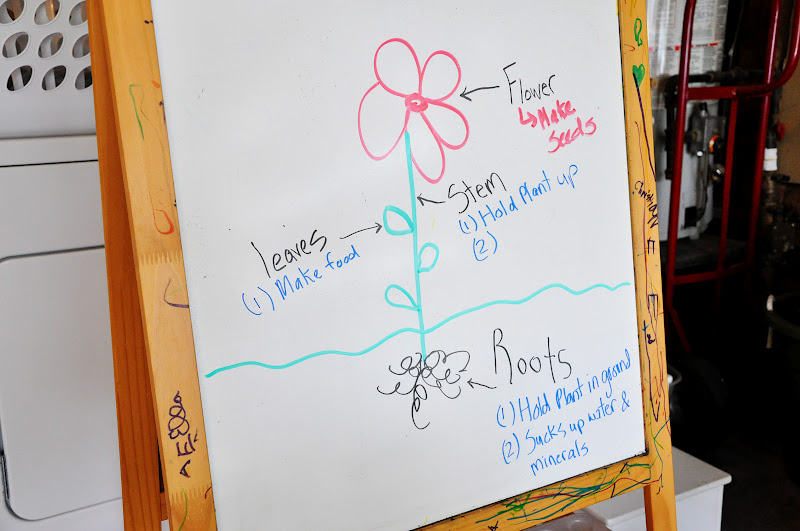 Flower
↳ Make
seeds
Stem
(1) Hold Plant up
(2)
leaves
(1) Make food
Roots
(1) Hold Plant in ground
(2) Sucks up water &
minerals